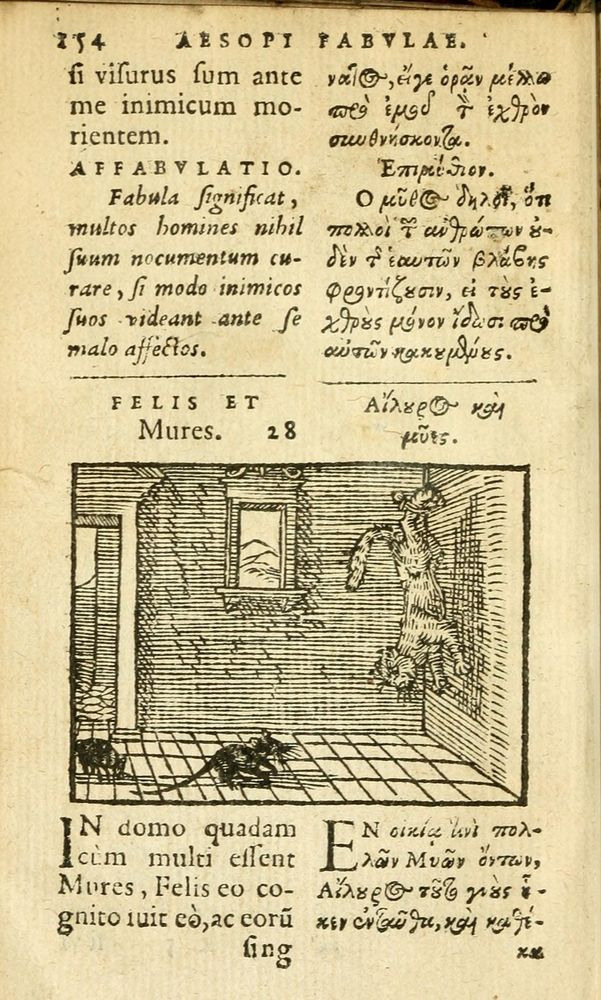 154 AESOPI FABVLAE.
si visurus sum ante
me inimicum mo-
rientem.
AFFABVLATIO.
Fabula significat,
multos homines nihil
suum nocumentum cu-
rare, si modo inimicos
suos videant ante se
malo affectos.
ναι⊙, εἴγε ὁρᾶν μέλλω
πρὸ ἐμοῦ τ̃ ἐχθρὸν
συνθνήσκοντα.
Επιμύθιον.
Ο μῦθος δηλοῖ, ὅτι
πολλοὶ τῶν ἀνθρώπων ου-
δὲν τ̃ ἑαυτῶν βλάβης
φροντίζουσιν, εἰ τοὺς ἐ-
χθροὺς μόνον ἴδωσι πρὸ
αὐτῶν κακουμένους.
FELIS ET
Mures. 28
Αἴλουρος καὶ
μῦες.
IN domo quadam
cùm multi essent
Mures, Felis eo co-
gnito iuit eò, ac eorũ
sing
ΕΝ οἰκίᾳ τινὶ πολ-
λῶν Μυῶν ὄντων,
Αἴλουρος τοῦτο γνοὺς ἧ-
κεν ἐνταῦθα, καὶ καθέ-
κα